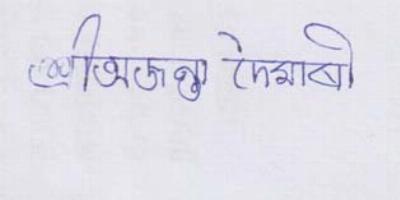 শ্ৰীঅজন্তা দৈমাৰী